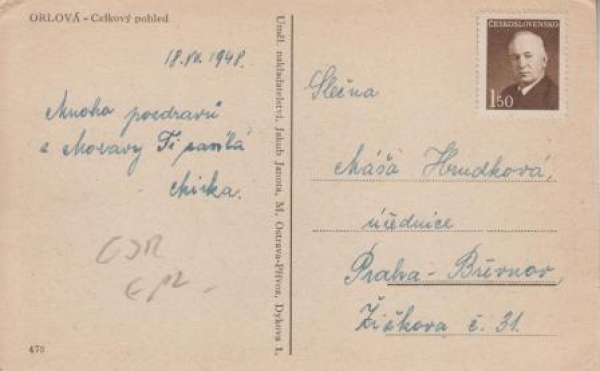 ORLOVÁ - Celkový pohled
18.VII.1948.
Mnoho pozdravů
z Moravy Ti zasílá
Mirka.
ČSR
475
Uměl. nakladatelství, Jakub Janota, M. Ostrava-Přívoz, Dykova 1.
ČESKOSLOVENSKO
1.50
Slečna
Máša Hrudková,
úřednice
Praha - Břevnov,
Žižkova č. 31.